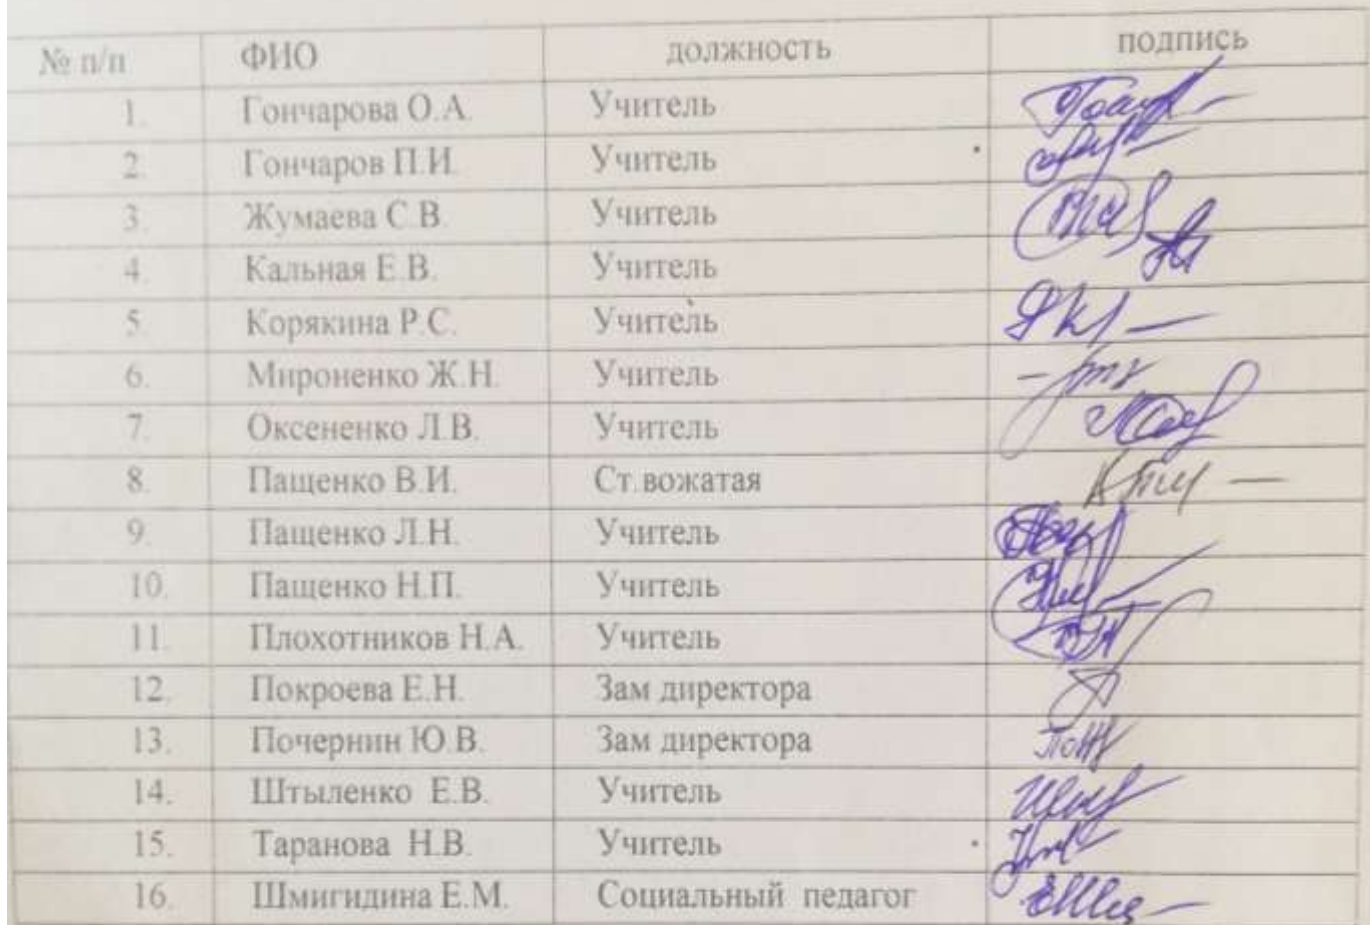 № п/п ФИО должность подпись
1. Гончарова О.А. Учитель
2. Гончаров П.И. Учитель
3. Жумаева С.В. Учитель
4. Кальная Е.В. Учитель
5. Корякина Р.С. Учитель
6. Мироненко Ж.Н. Учитель
7. Оксененко Л.В. Учитель
8. Пащенко В.И. Ст.вожатая
9. Пащенко Л.Н. Учитель
10. Пащенко Н.П. Учитель
11. Плохотников Н.А. Учитель
12. Покроева Е.Н. Зам директора
13. Почернин Ю.В. Зам директора
14. Штыленко Е.В. Учитель
15. Таранова Н.В. Учитель
16. Шмигидина Е.М. Социальный педагог